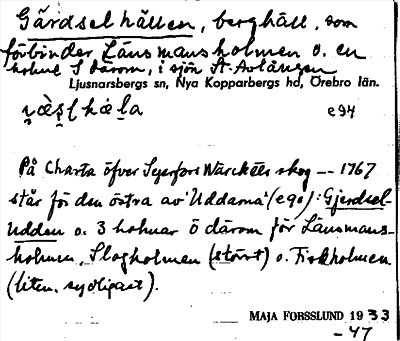 Gärdselhällen, berghäll, som
förbinder Länsmansholmen o. en
holme S därom, i sjön St. Avlången
Ljusnarsbergs sn, Nya Kopparbergs hd, Örebro län.
e94
På Charta öfver Seyerfors Wärckets skog -- 1767
står för den östra av "Uddarna" (e90): Gjerdsel-
udden o. 3 holmar ö därom för Länsmans-
holmen, Slogholmen (störst) o. Fiskholmen
(liten, sydligast).
MAJA FORSSLUND 1933
-47